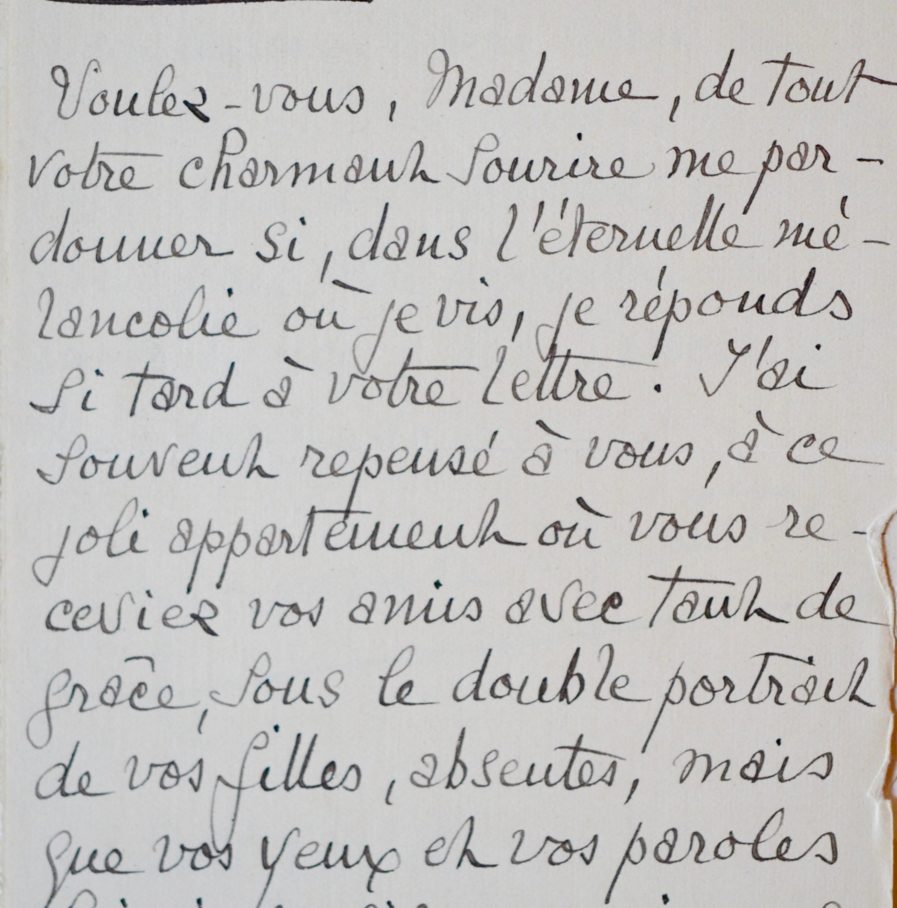 Voulez-vous, Madame, de tout
votre charmant sourire me par-
donner si, dans l'éternelle mé-
lancolie où je vis, je réponds
si tard à votre lettre. J'ai
souvent repensé à vous, à ce
joli appartement où vous re-
ceviez vos amis avec tant de
grâce, sous le double portrait
de vos filles, absentes, mais
que vos yeux et vos paroles